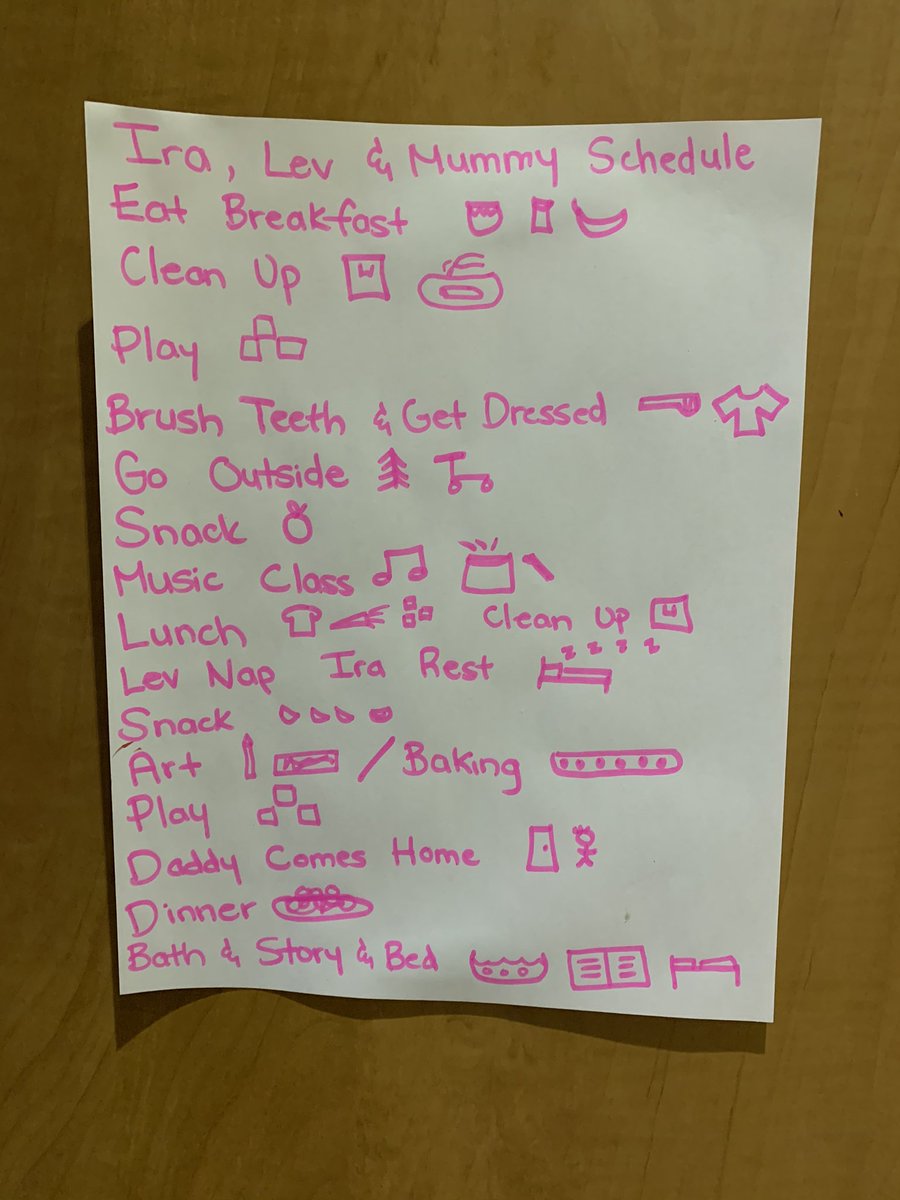 Ira, Lev & Mummy Schedule
Eat Breakfast
Clean Up
Play
Brush Teeth & Get Dressed
Go Outside
Snack
Music Class
Lunch Clean Up
Lev Nap Ira Rest
Snack
Art / Baking
Play
Daddy Comes Home
Dinner
Bath & Story & Bed